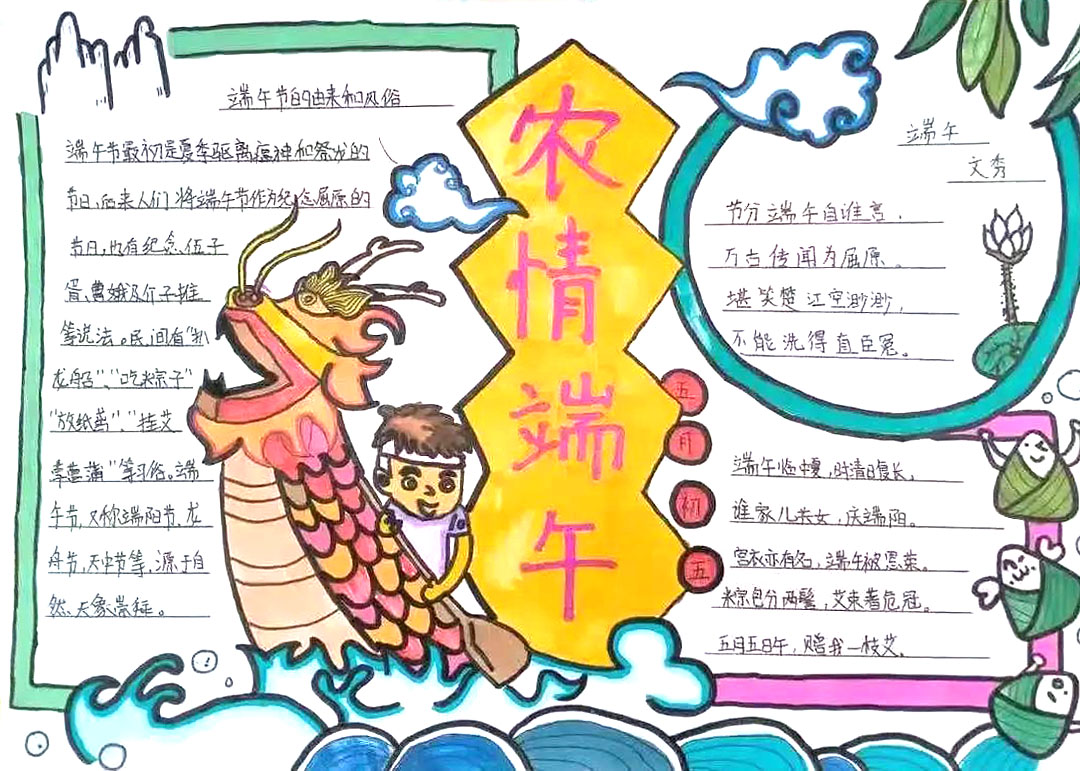 端午节的由来和风俗
端午节最初是夏季驱离瘟神和祭龙的
节日,后来人们将端午节作为纪念屈原的
节日,也有纪念伍子
胥、曹娥及介子推
等说法。民间有“扒
龙船”、“吃粽子”
“放纸鸢”、“挂艾
草菖蒲”等习俗。端
午节,又称端阳节,龙
舟节,天中节等,源于自
然天象崇拜。
农情端午
五月初五
端午
文秀
节分端午自谁言,
万古传闻为屈原。
堪笑楚江空渺渺,
不能洗得直臣冤。
端午临中夏,时清日复长。
谁家儿共女,庆端阳。
宫衣亦有名,端午被恩荣。
粽包分两髻,艾束著危冠。
五月五日午,赠我一枝艾。